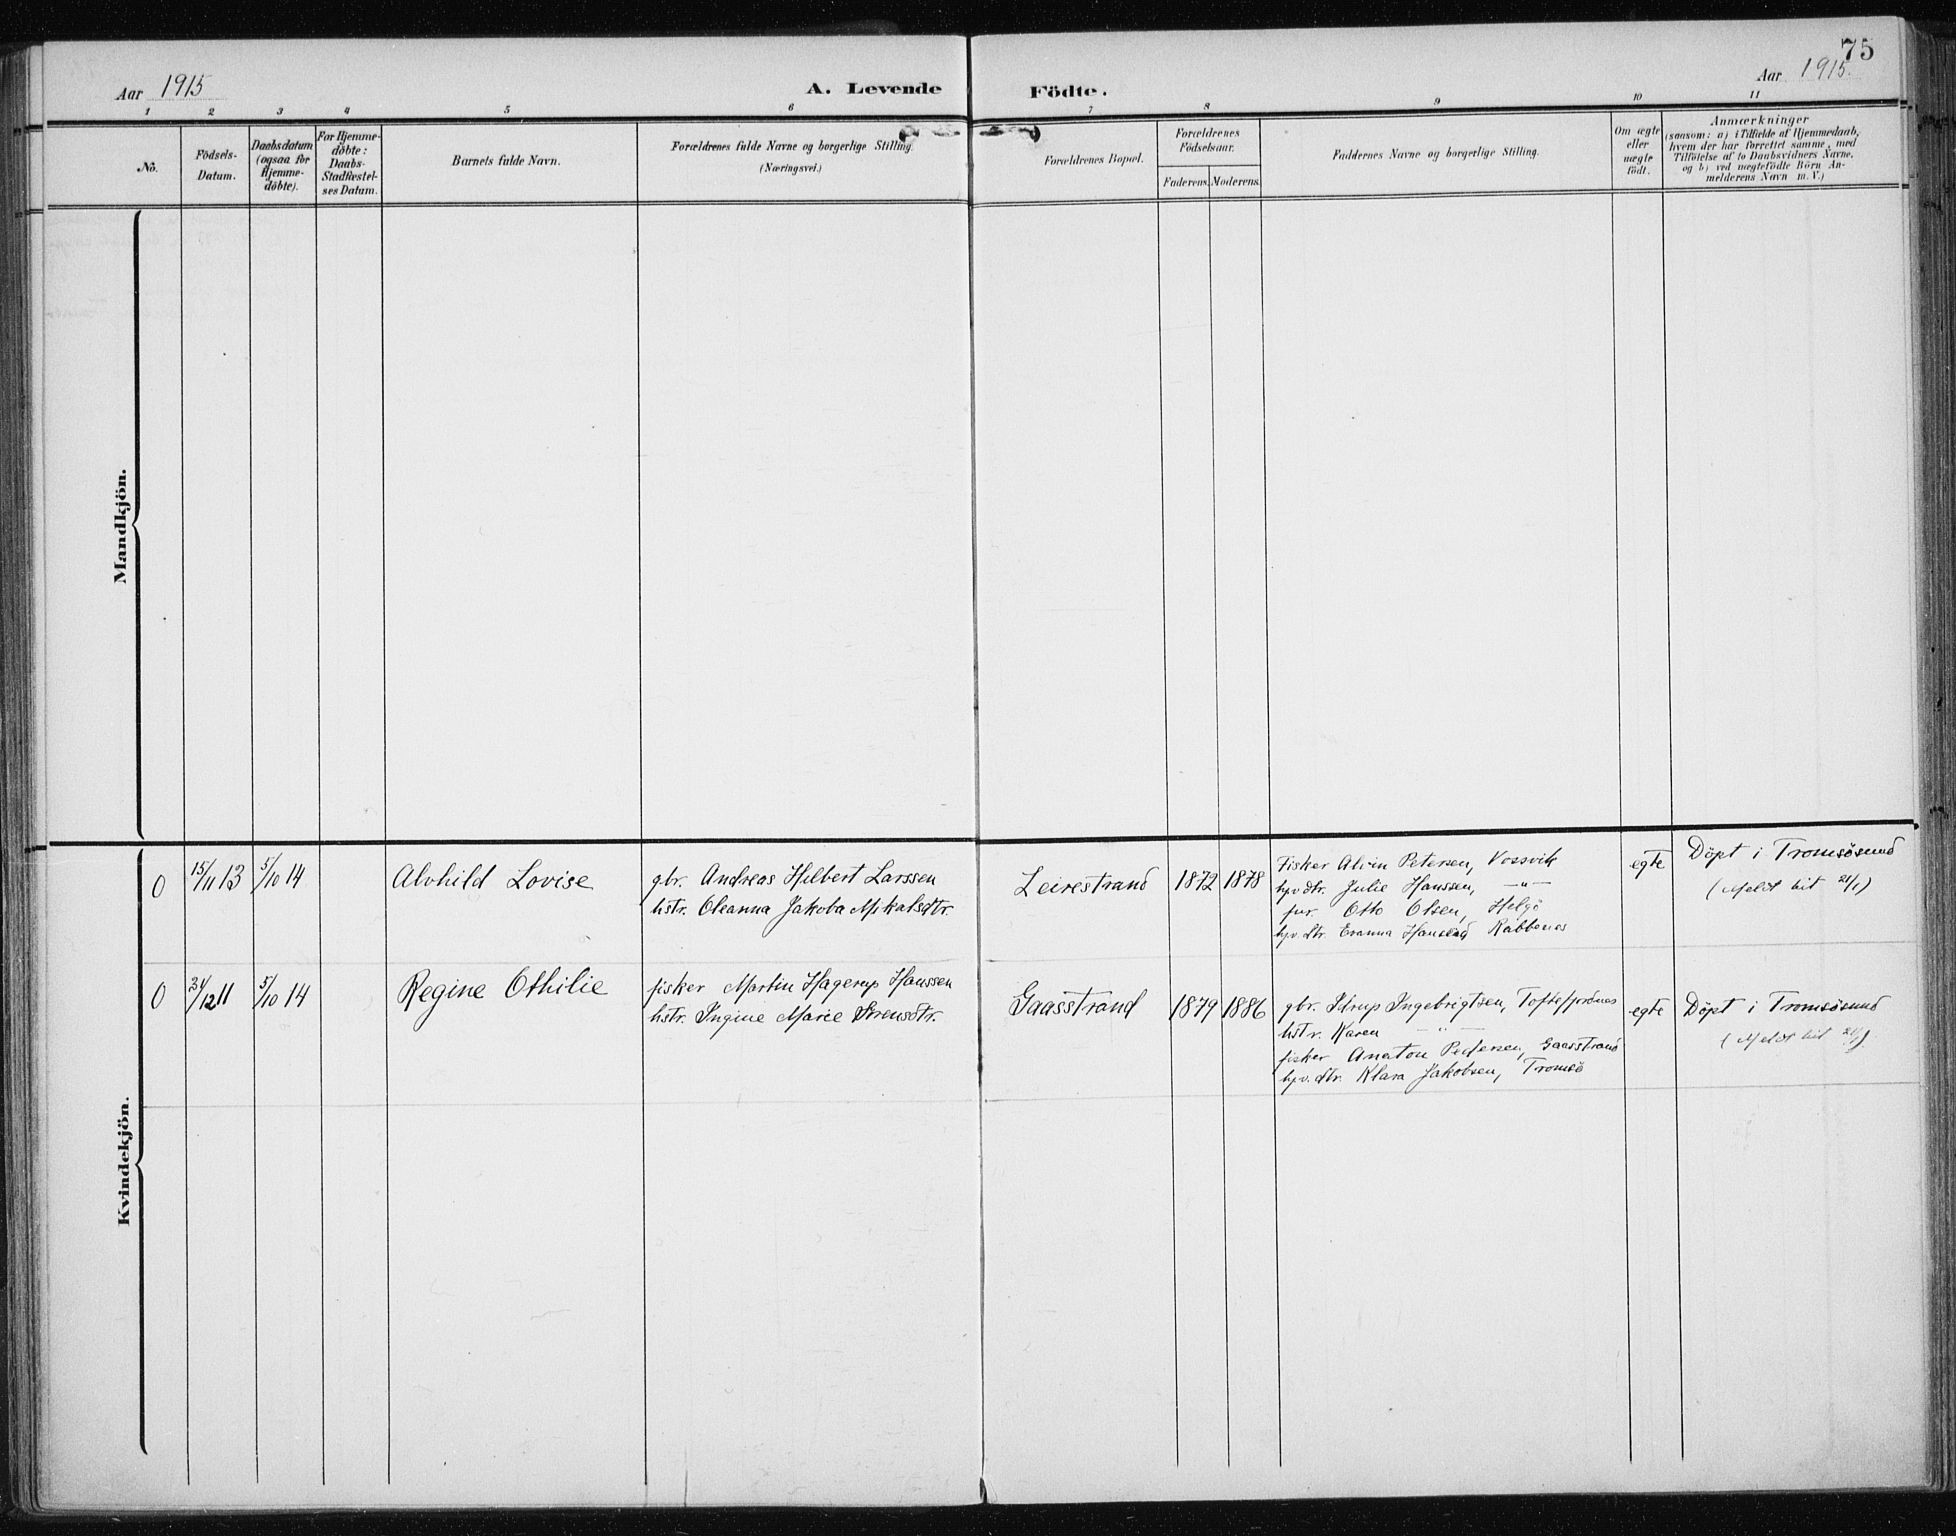 75
Aar 1915
A. Levende Födte.
Aar 1915.
1 2 3 4 5 6 7 8 9 10 11
No.
Födsels-
Datum.
Daabsdatum
(ogsaa for
Hjemme-
döbte).
For Hjemme-
döbte:
Daabs-
Stadfæstel-
ses Datum.
Barnets fulde Navn.
Forældrenes fulde Navne og borgerlige Stilling.
(Næringsvei.)
Forældrenes Bopæl.
Forældrenes
Födselsaar.
Faderens. Moderens.
Faddernes Navne og borgerlige Stilling.
Om ægte
eller
uægte
födt.
Anmærkninger
(saasom: a) i Tilfælde af Hjemmedaab,
hvem der har forrettet samme, med
Tilföielse af to Daabsvidners Navne,
og b) ved uægtefödte Börn An-
melderens Navn m. V.)
Mandkjön.
Kvindekjön.
0
15/11 13
5/10 14
Alvhild Lovise
gbr. Andreas Hilbert Larssen
hstr. Oleanna Jakoba Mikalsdtr.
Leirestrand
1872 1878
Fisker Alvin Petersen, Vossvik
hpv dtr. Julie Hanssen, —"—
fur. Otto Olsen, Helgö
hpv. dtr. Evanna Rabbenes
egte
Döpt i Tromsösund
(Meldt hit 21/1)
0
24/12 11
5/10 14
Regine Othilie
fisker Martin Hagerup Hanssen
hstr. Ingine Marie
Gaasstrand
1879 1886
gbr. Ingebrigtsen,
hstr. Karen —"—
fisker Anaton Pedersen, Gaasstrand
hpv. dtr. Klara Jakobsen, Tromsö
egte
Döpt i Tromsösund
(Meldt hit 21/1)